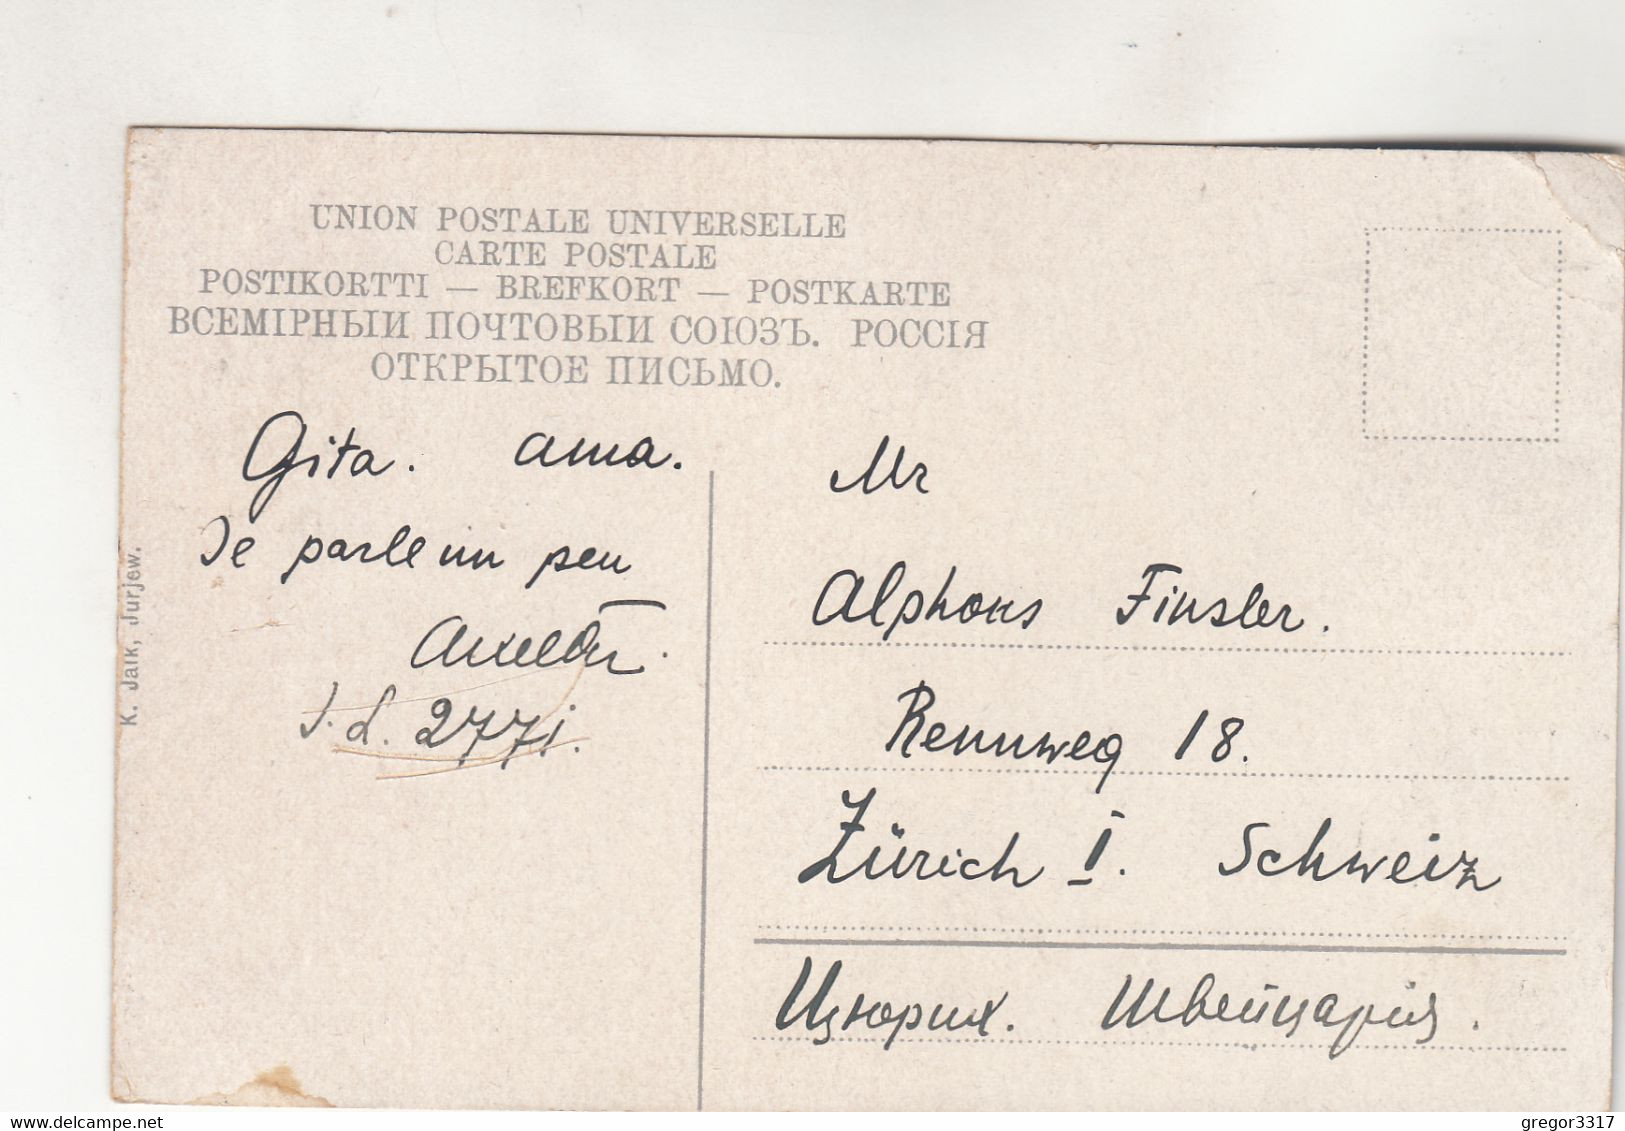 UNION POSTALE UNIVERSELLE
CARTE POSTALE
POSTIKORTTI — BREFKORT — POSTKARTE
ВСЕМІРНЫИ ПОЧТОВЫИ СОЮЗЪ. РОССІЯ
ОТКРЫТОЕ ПИСЬМО.
Gita. ama.
Je parle un peu
J. d. 2771.
K. Jaik, Jurjew.
Mr
Alphons Finsler.
Rennweg 18.
Zürich I. Schweiz
Цюрих. Швейцария.
delcampe.net
gregor3317